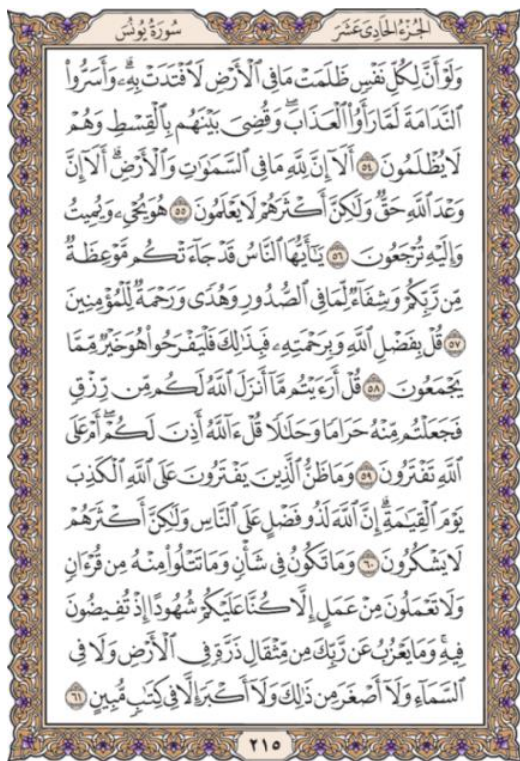 الجُزْءُ الحَادِيَ عَشَرَ سُورَةُ يُونُسَ
وَلَوْ أَنَّ لِكُلِّ نَفْسٍ ظَلَمَتْ مَا فِي الْأَرْضِ لَافْتَدَتْ بِهِۦۗ وَأَسَرُّوا۟
النَّدَامَةَ لَمَّا رَأَوُا۟ الْعَذَابَۖ وَقُضِيَ بَيْنَهُم بِالْقِسْطِ وَهُمْ
لَا يُظْلَمُونَ ٥٤ أَلَآ إِنَّ لِلَّهِ مَا فِي السَّمَٰوَٰتِ وَالْأَرْضِۗ أَلَآ إِنَّ
وَعْدَ اللَّهِ حَقٌّ وَلَٰكِنَّ أَكْثَرَهُمْ لَا يَعْلَمُونَ ٥٥ هُوَ يُحْيِۦ وَيُمِيتُ
وَإِلَيْهِ تُرْجَعُونَ ٥٦ يَٰٓأَيُّهَا النَّاسُ قَدْ جَآءَتْكُم مَّوْعِظَةٌ
مِّن رَّبِّكُمْ وَشِفَآءٌ لِّمَا فِي الصُّدُورِ وَهُدًى وَرَحْمَةٌ لِّلْمُؤْمِنِينَ
٥٧ قُلْ بِفَضْلِ اللَّهِ وَبِرَحْمَتِهِۦ فَبِذَٰلِكَ فَلْيَفْرَحُوا۟ هُوَ خَيْرٌ مِّمَّا
يَجْمَعُونَ ٥٨ قُلْ أَرَءَيْتُم مَّآ أَنزَلَ اللَّهُ لَكُم مِّن رِّزْقٍ
فَجَعَلْتُم مِّنْهُ حَرَامًا وَحَلَٰلًا قُلْ ءَآللَّهُ أَذِنَ لَكُمْۖ أَمْ عَلَى
اللَّهِ تَفْتَرُونَ ٥٩ وَمَا ظَنُّ الَّذِينَ يَفْتَرُونَ عَلَى اللَّهِ الْكَذِبَ
يَوْمَ الْقِيَٰمَةِۗ إِنَّ اللَّهَ لَذُو فَضْلٍ عَلَى النَّاسِ وَلَٰكِنَّ أَكْثَرَهُمْ
لَا يَشْكُرُونَ ٦٠ وَمَا تَكُونُ فِي شَأْنٍ وَمَا تَتْلُوا۟ مِنْهُ مِن قُرْءَانٍ
وَلَا تَعْمَلُونَ مِنْ عَمَلٍ إِلَّا كُنَّا عَلَيْكُمْ شُهُودًا إِذْ تُفِيضُونَ
فِيهِۚ وَمَا يَعْزُبُ عَن رَّبِّكَ مِن مِّثْقَالِ ذَرَّةٍ فِي الْأَرْضِ وَلَا فِي
السَّمَآءِ وَلَآ أَصْغَرَ مِن ذَٰلِكَ وَلَآ أَكْبَرَ إِلَّا فِي كِتَٰبٍ مُّبِينٍ ٦١
٢١٥